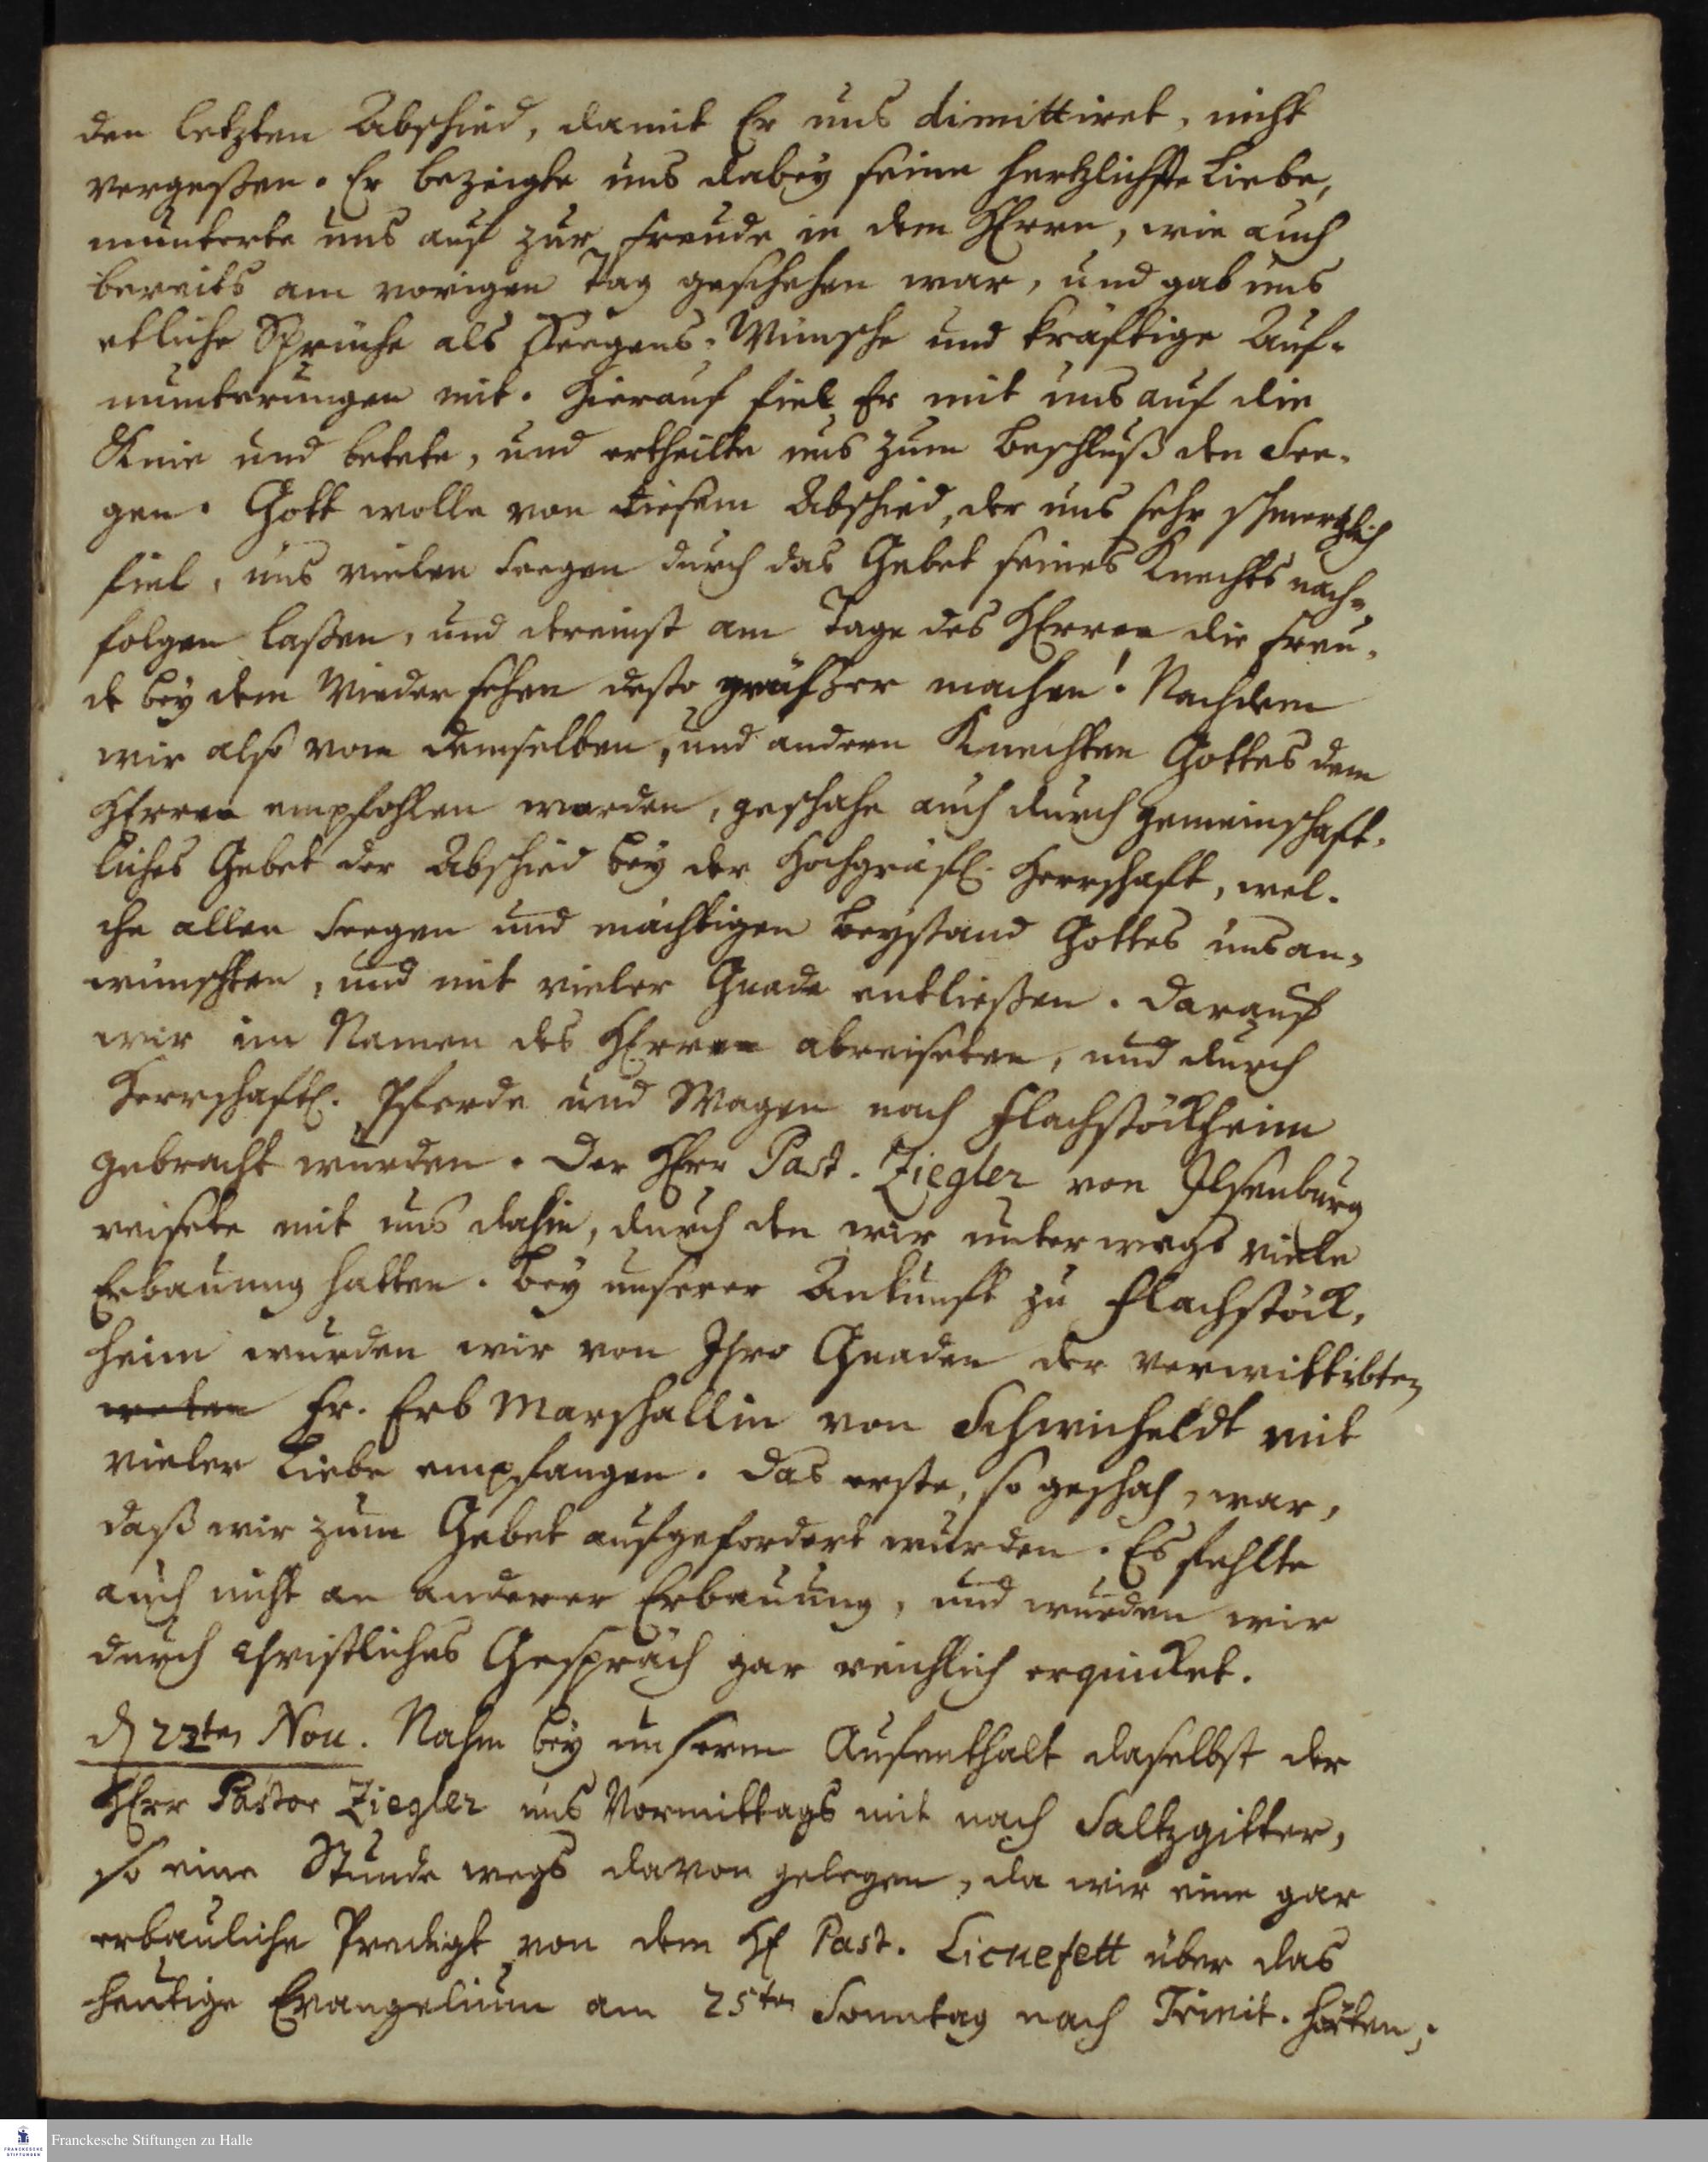 den letzten Abschied, damit Er uns dimittiret, nicht
vergeßen. Er bezeigte uns dabey seine hertzlichste Liebe,
munterte uns auf zur Freude in dem HErrn, wie auch
bereits am vorigen Tag geschehen war, und gab uns
etliche Sprüche als Seegens-Wünsche und kräftige Auf-
munterungen mit. Hierauf fiel Er mit uns auf die
Knie und betete, und ertheilte uns zum Beschluß den See-
gen. Gott wolle von diesem Abschied, der uns sehr schmertzlich
fiel, uns vielen Seegen durch das Gebet seines Knechts nach-
folgen laßen, und dereinst am Tage des HErren die Freu-
de bey dem Wieder sehen desto größer machen! Nachdem
wir also von demselben, und andern Knechten Gottes dem
HErren empfohlen worden, geschahe auch durch gemeinschaft-
liches Gebet der Abschied bey der Hochgräfl. Herrschaft, wel-
che allen Seegen und mächtigen Beystand Gottes uns an-
wünschten, und mit vieler Gnade entließen. Darauf
wir im Namen des HErren abreiseten, und durch
Herrschaftl. Pferde und Wagen nach Flachstöckheim
gebracht wurden. Der HErr Past. Ziegler von Ilsenburg
reisete mit uns dahin, durch den wir unterwegs viele
Erbauung hatten. Bey unserer Ankunft zu Flachstöck-
heim wurden wir von Ihro Gnaden der verwittibten
Fr. Erb Marschallin von Schwicheldt mit
vieler Liebe empfangen. Das erste, so geschah, war,
daß wir zum Gebet aufgefordert wurden. Es fehlte
auch nicht an anderer Erbauung, und wurden wir
durch christliches Gespräch gar reichlich erquicket.
d 22ten Nov. Nahm bey unserm Aufenthalt daselbst der
HErr Pastor Ziegler uns Vormittags mit nach Saltzgitter,
so eine Stunde wegs davon gelegen, da wir eine gar
erbauliche Predigt von dem H. Past. Licnefett über das
heutige Evangelium am 25ten Sonntag nach Trinit. hörten,
Franckesche Stiftungen zu Halle